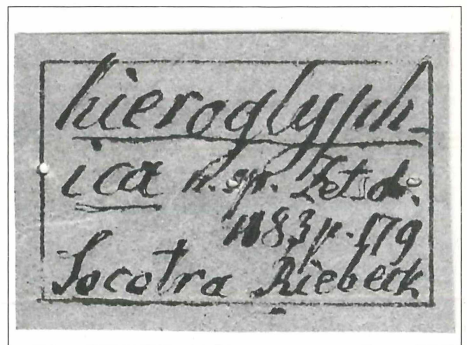 hieroglyph-
ica n. sp. Zetsde.
1883 p. 179
Socotra Riebeck